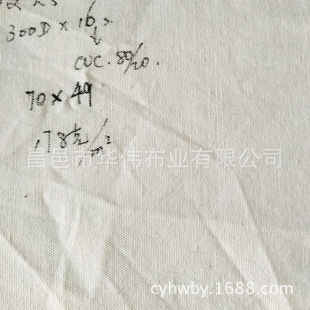 300D × 16s
↓
CVC. 80/20.
70 × 49
178克/m²
昌邑市华伟布业有限公司
cyhwby.1688.com